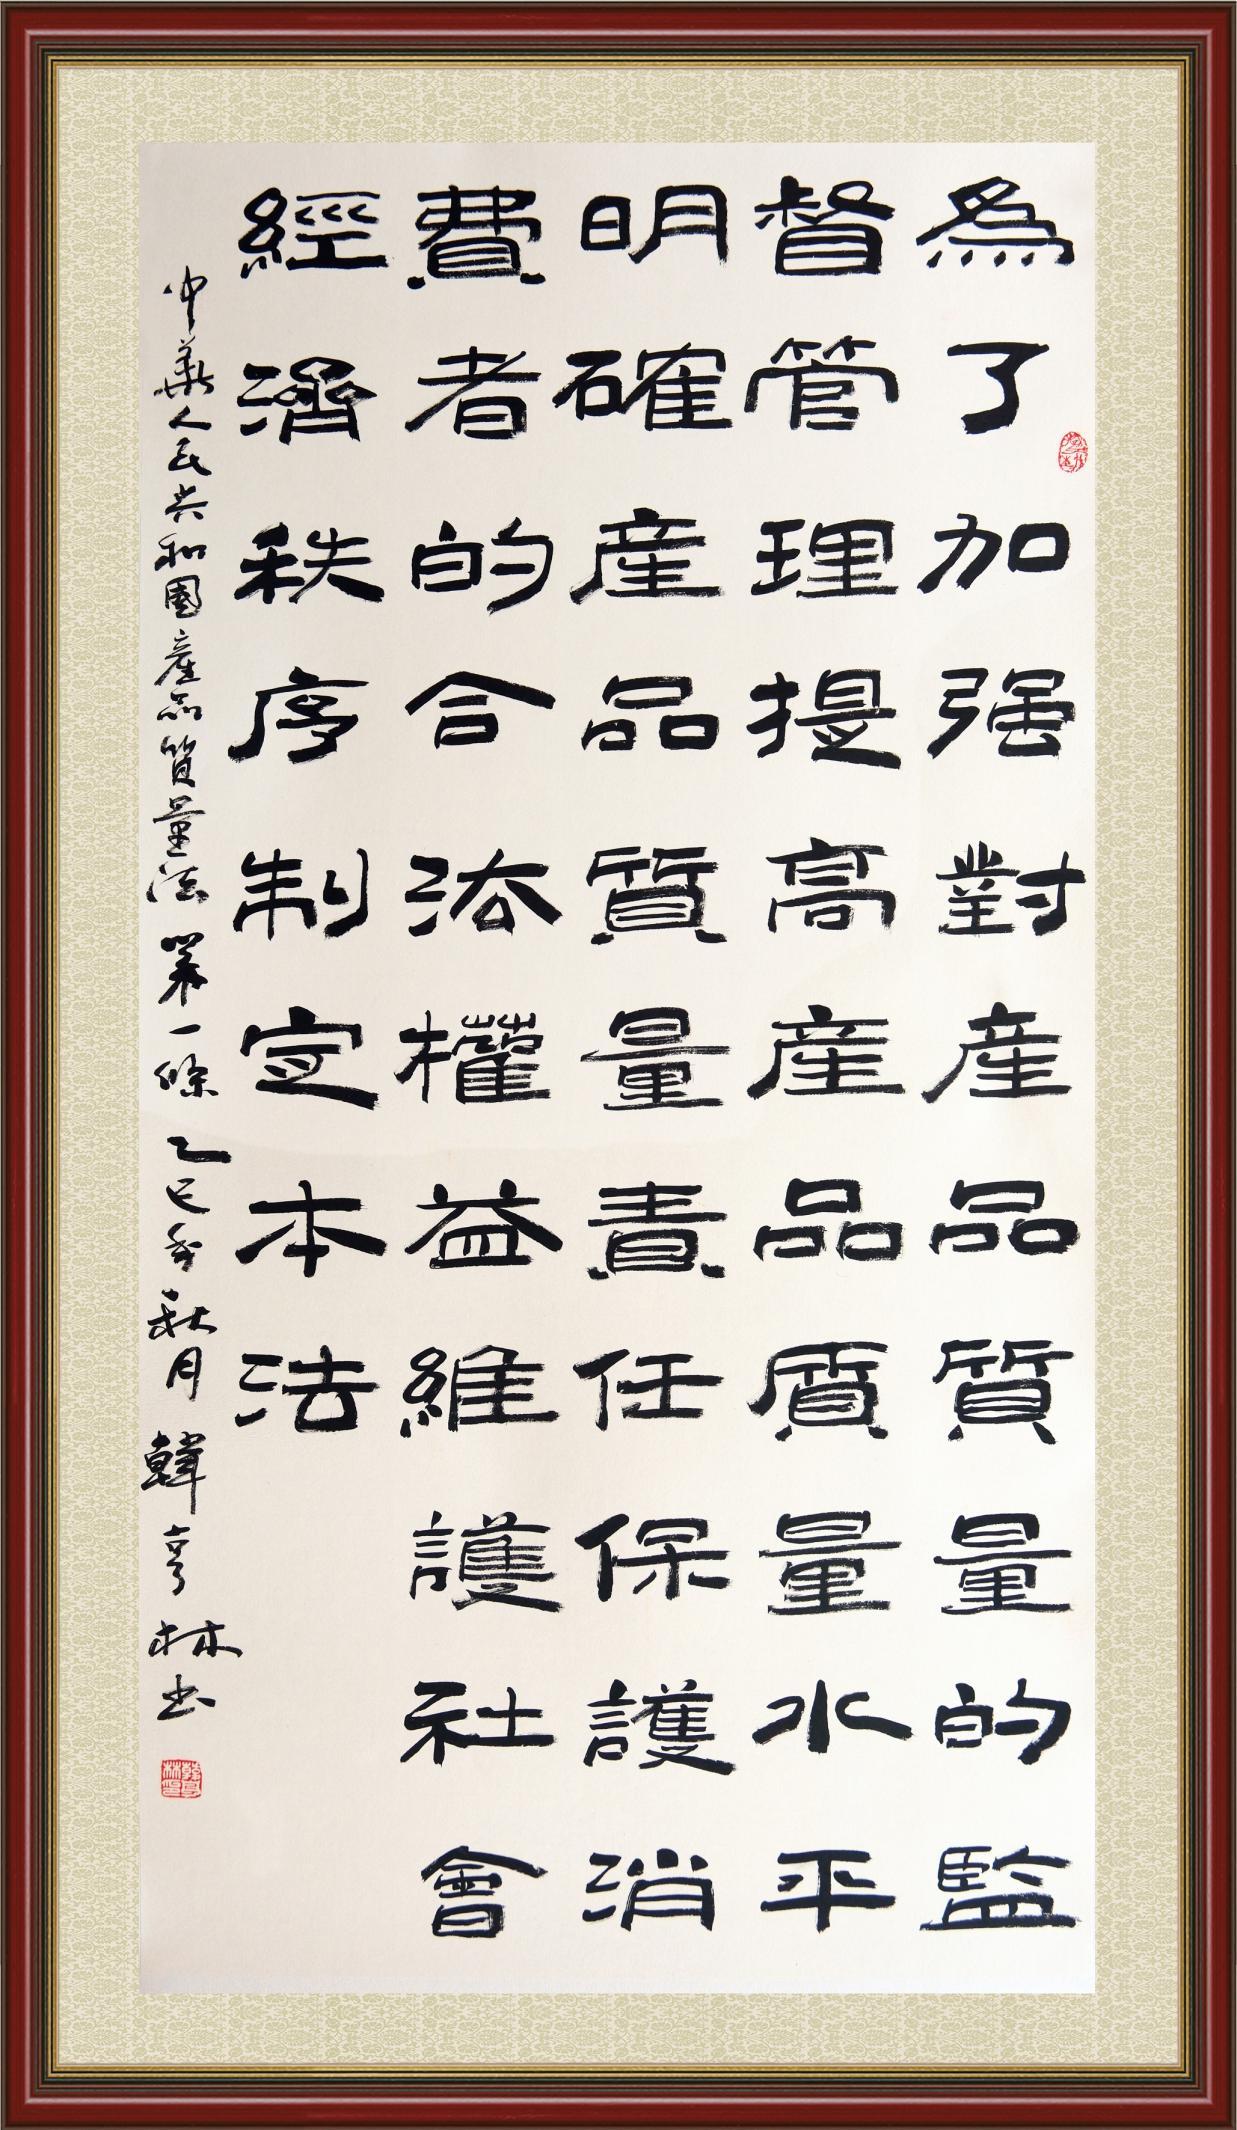 為了加强對產品質量的監
督管理提高產品質量水平
明確產品質量責任保護消
費者的合法權益維護社會
經濟秩序制定本法
中華人民共和國產品質量法第一條乙巳年秋月韓亨林书